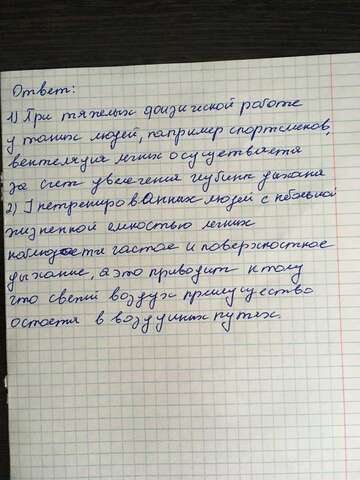 Ответ:
1) При тяжелых физической работе
у таких людей, например спортсменов,
вентеляция легких осуществляется
за счет увелечения глубины дыхания
2) У нетренированных людей с небольшой
жизненной емкостью легких
наблюдается частое и поверхностное
дыхание, а это приводит к тому
что свежий воздух преимущество
остается в воздушных путях.